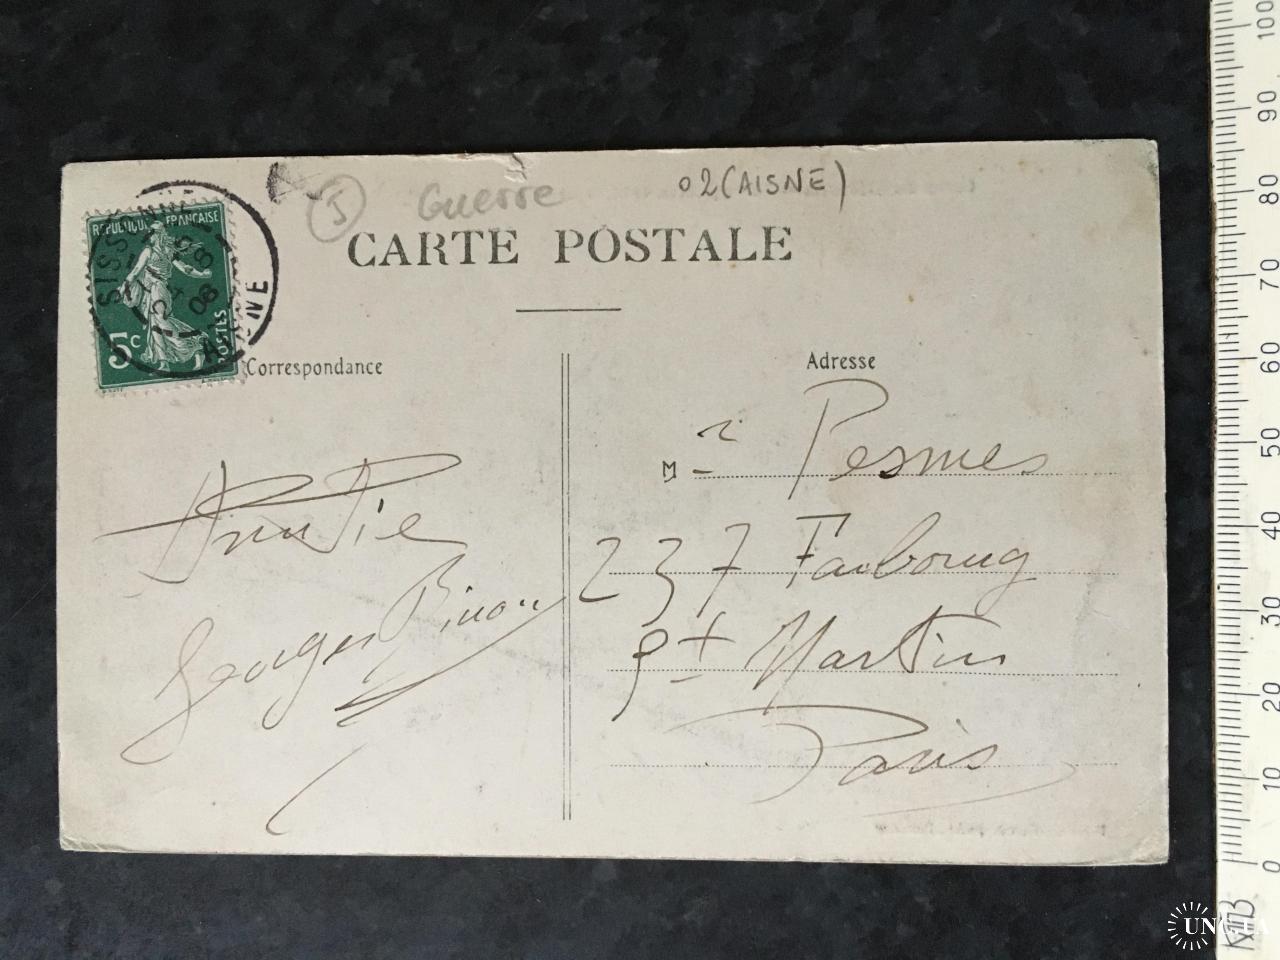 5 Guerre 02 (AISNE)
CARTE POSTALE
REPUBLIQUE FRANÇAISE
5c
POSTES
SISSONNE
AISNE
08
Correspondance
Adresse
Amitié
Georges
Mr Pesmes
237 Faubourg
St Martin
Paris
100
90
80
70
60
50
40
30
20
10
0
UNC.UA